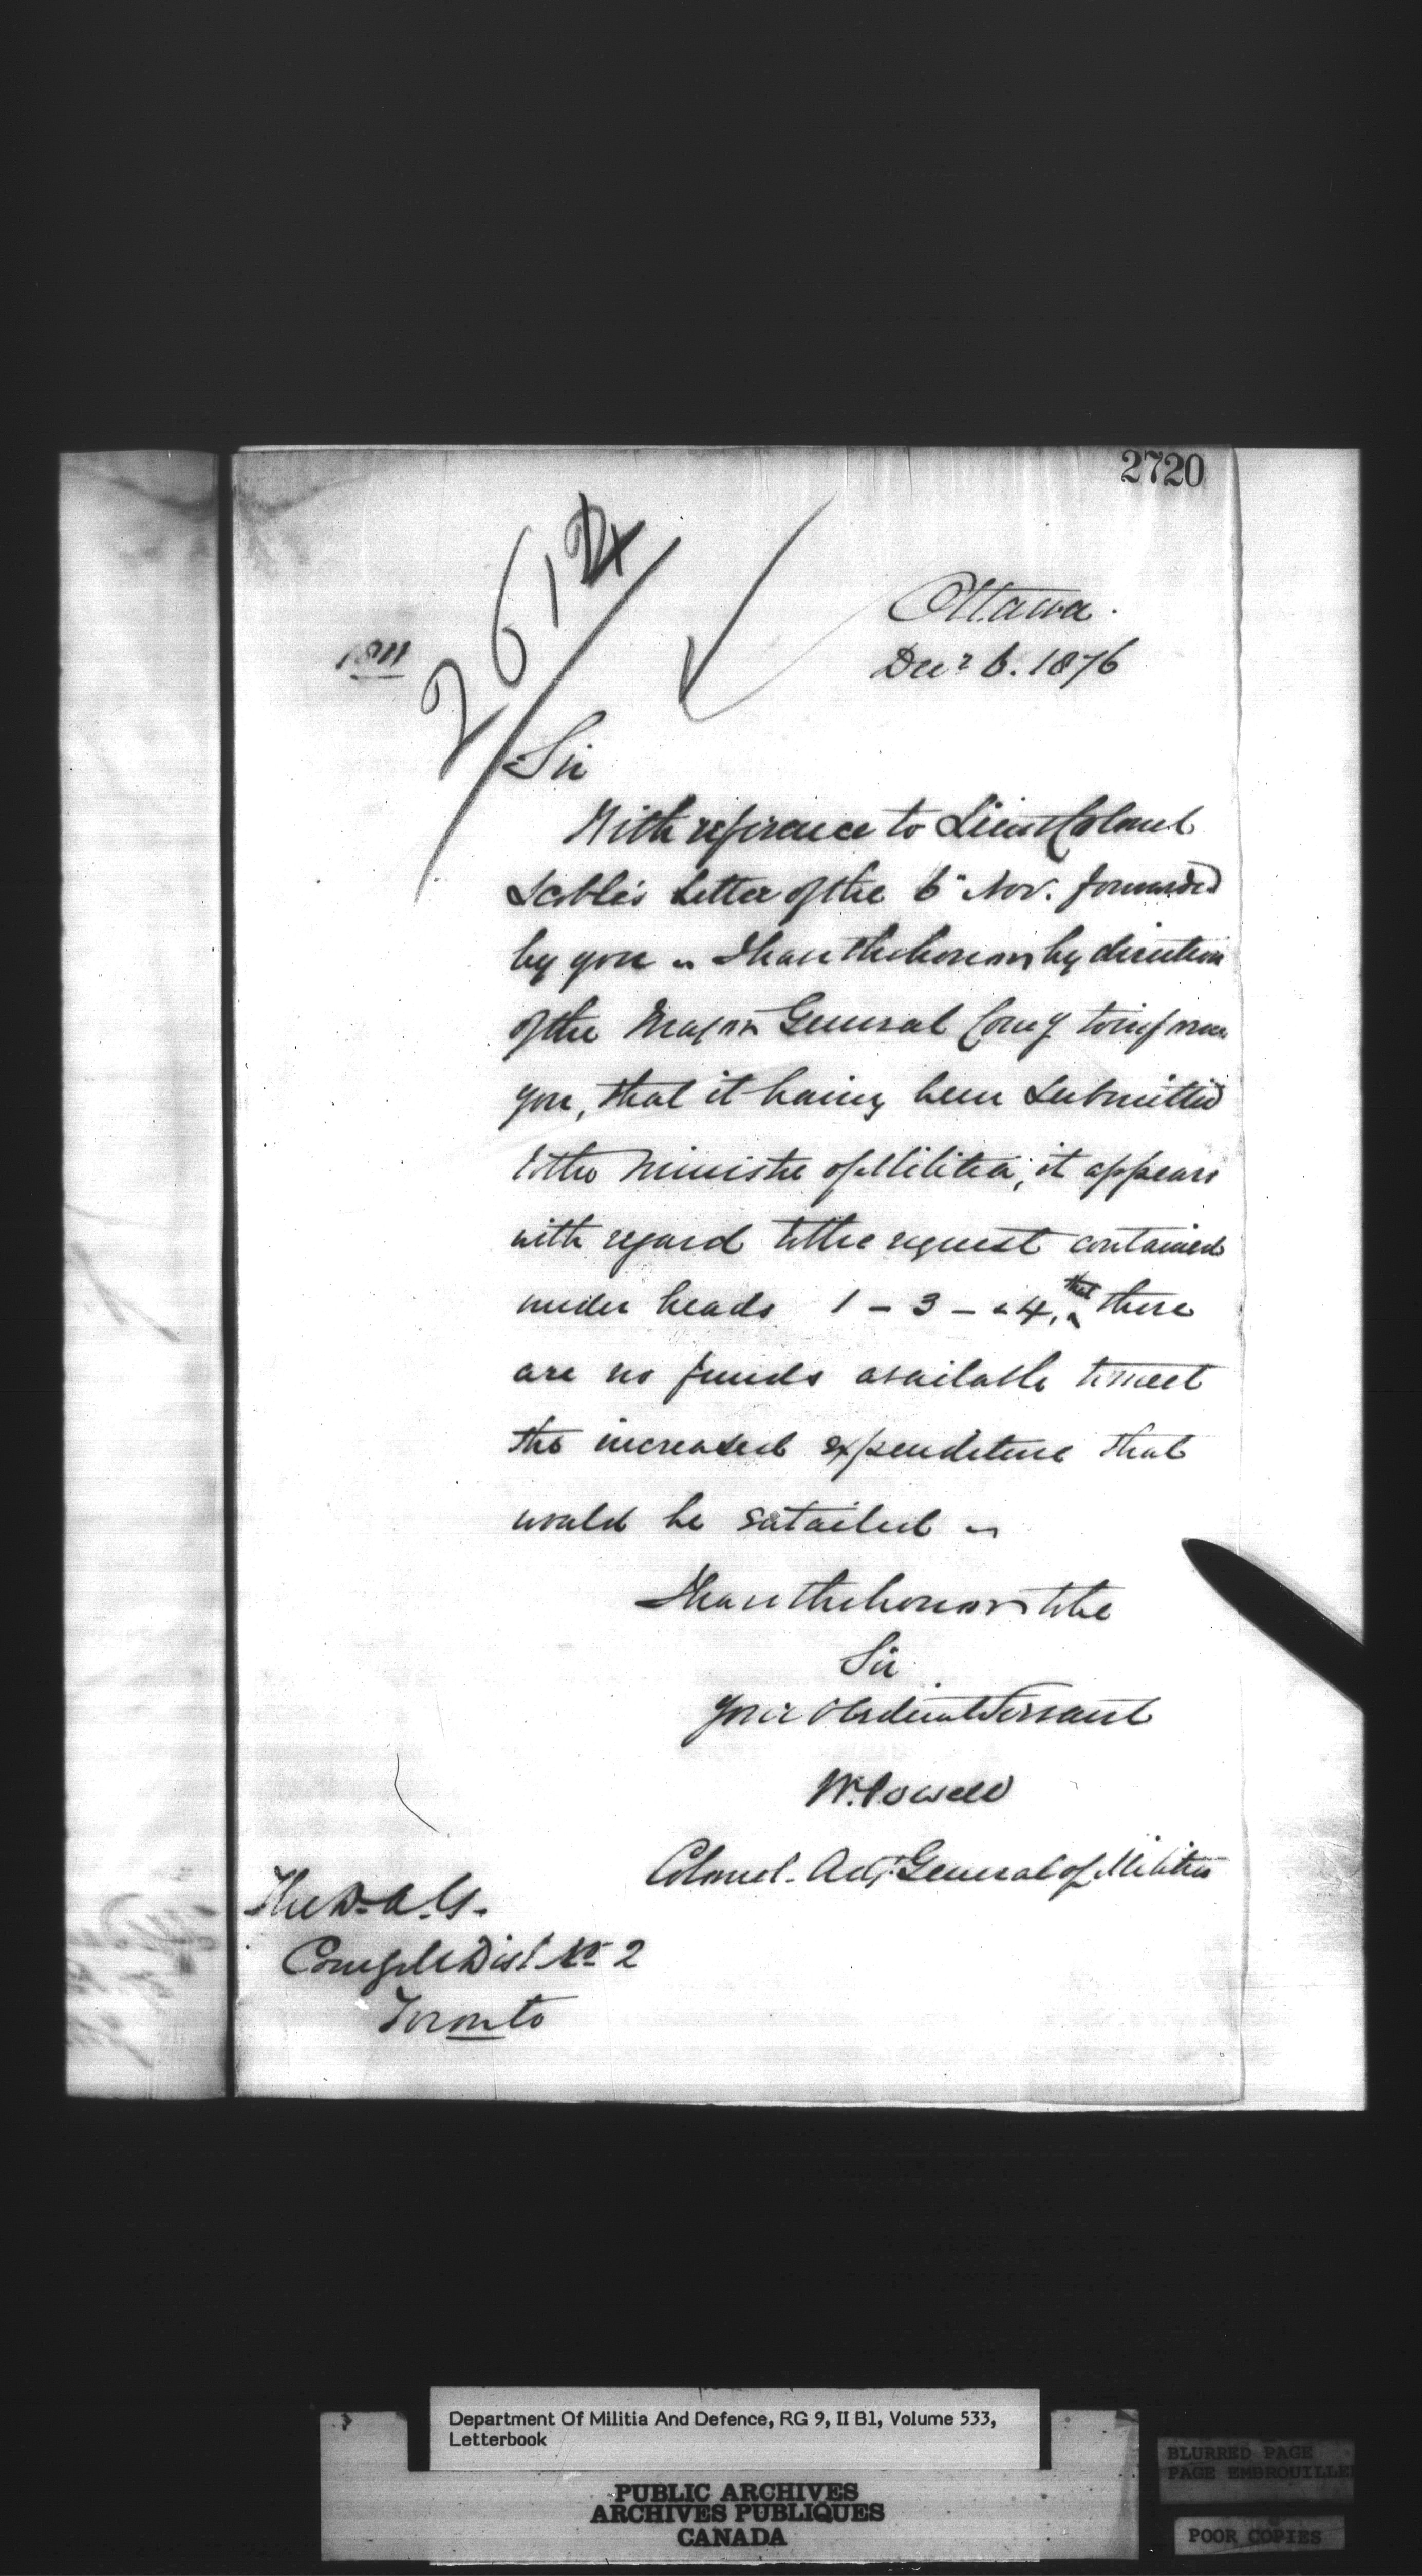 2720
2612
Ottawa.
Decr 6. 1876
1811
Sir
With reference to Lieut Colonel
Scoble's Letter of the 6" Nov. forwarded
by you - I have the honor by direction
of the Major General Comg to inform
you, that it having been submitted
to the Minister of Militia, it appears
with regard to the request contained
under heads 1 - 3 - & 4, that there
are no funds available to meet
the increased expenditure that
would be entailed -
I have the honor to be
Sir
Your Obedient Servant
W. Powell
Colonel. Adjt General of Militia
The D.A.G.
Comg M Dist No 2
Toronto
Department Of Militia And Defence, RG 9, II B1, Volume 533,
Letterbook
PUBLIC ARCHIVES
ARCHIVES PUBLIQUES
CANADA
BLURRED PAGE
PAGE EMBROUILLE
POOR COPIES